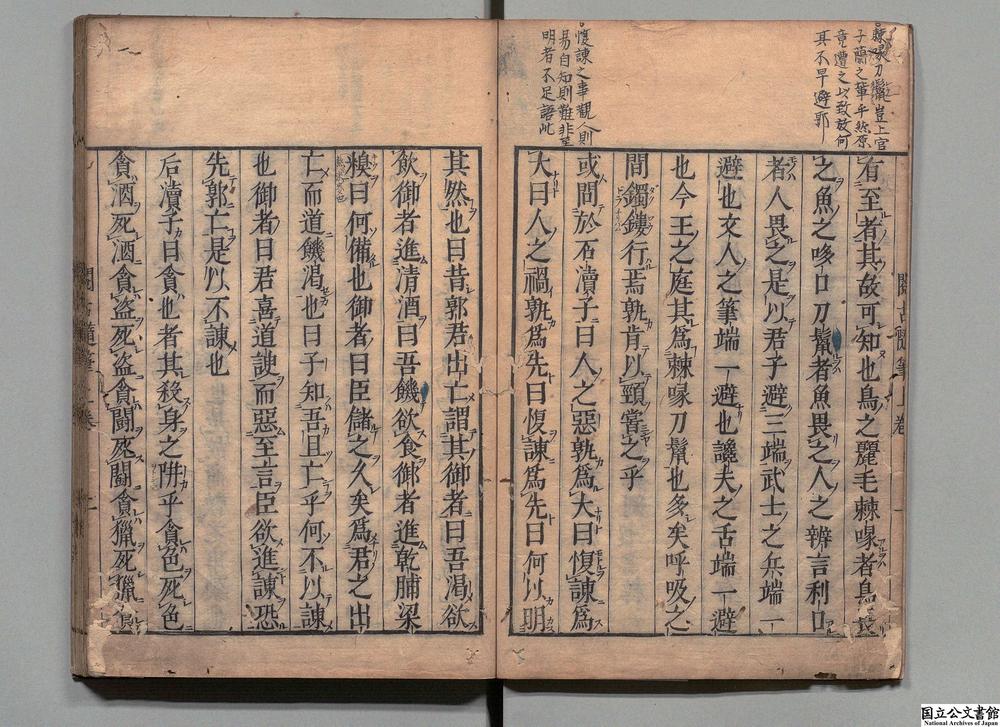 棘喙刀鬣豈上官
子蘭之輩乎然原
竟遭之以致放何
其不早避郭
愎諫之事觀人則
易自知則難非至
明者不足語此
有至者其故可知也鳥之麗毛棘喙者鳥畏
之魚之哆口刀鬣者魚畏之人之辨言利口
者人畏之是以君子避三端武士之兵端一
避也文人之筆端一避也讒夫之舌端一避
也今王之庭其爲棘喙刀鬣也多矣呼吸之
間鐲鏤行焉孰肯以頸嘗之乎
或問於石瀆子曰人之惡孰爲大曰愎諫爲
大曰人之禍孰爲先曰愎諫爲先曰何以明
其然也曰昔郭君出亡謂其御者曰吾渴欲
飲御者進清酒曰吾饑欲食御者進乾脯梁
糗曰何備也御者曰臣儲之久矣爲君之出
亡而道饑渴也曰子知吾且亡乎何不以諫
也御者曰君喜道諛而惡至言臣欲進諫恐
先郭亡是以不諫也
后瀆子曰貪也者其殺身之阱乎貪色死色
貪酒死酒貪盜死盜貪鬭死鬭貪獵死獵
国立公文書館
National Archives of Japan